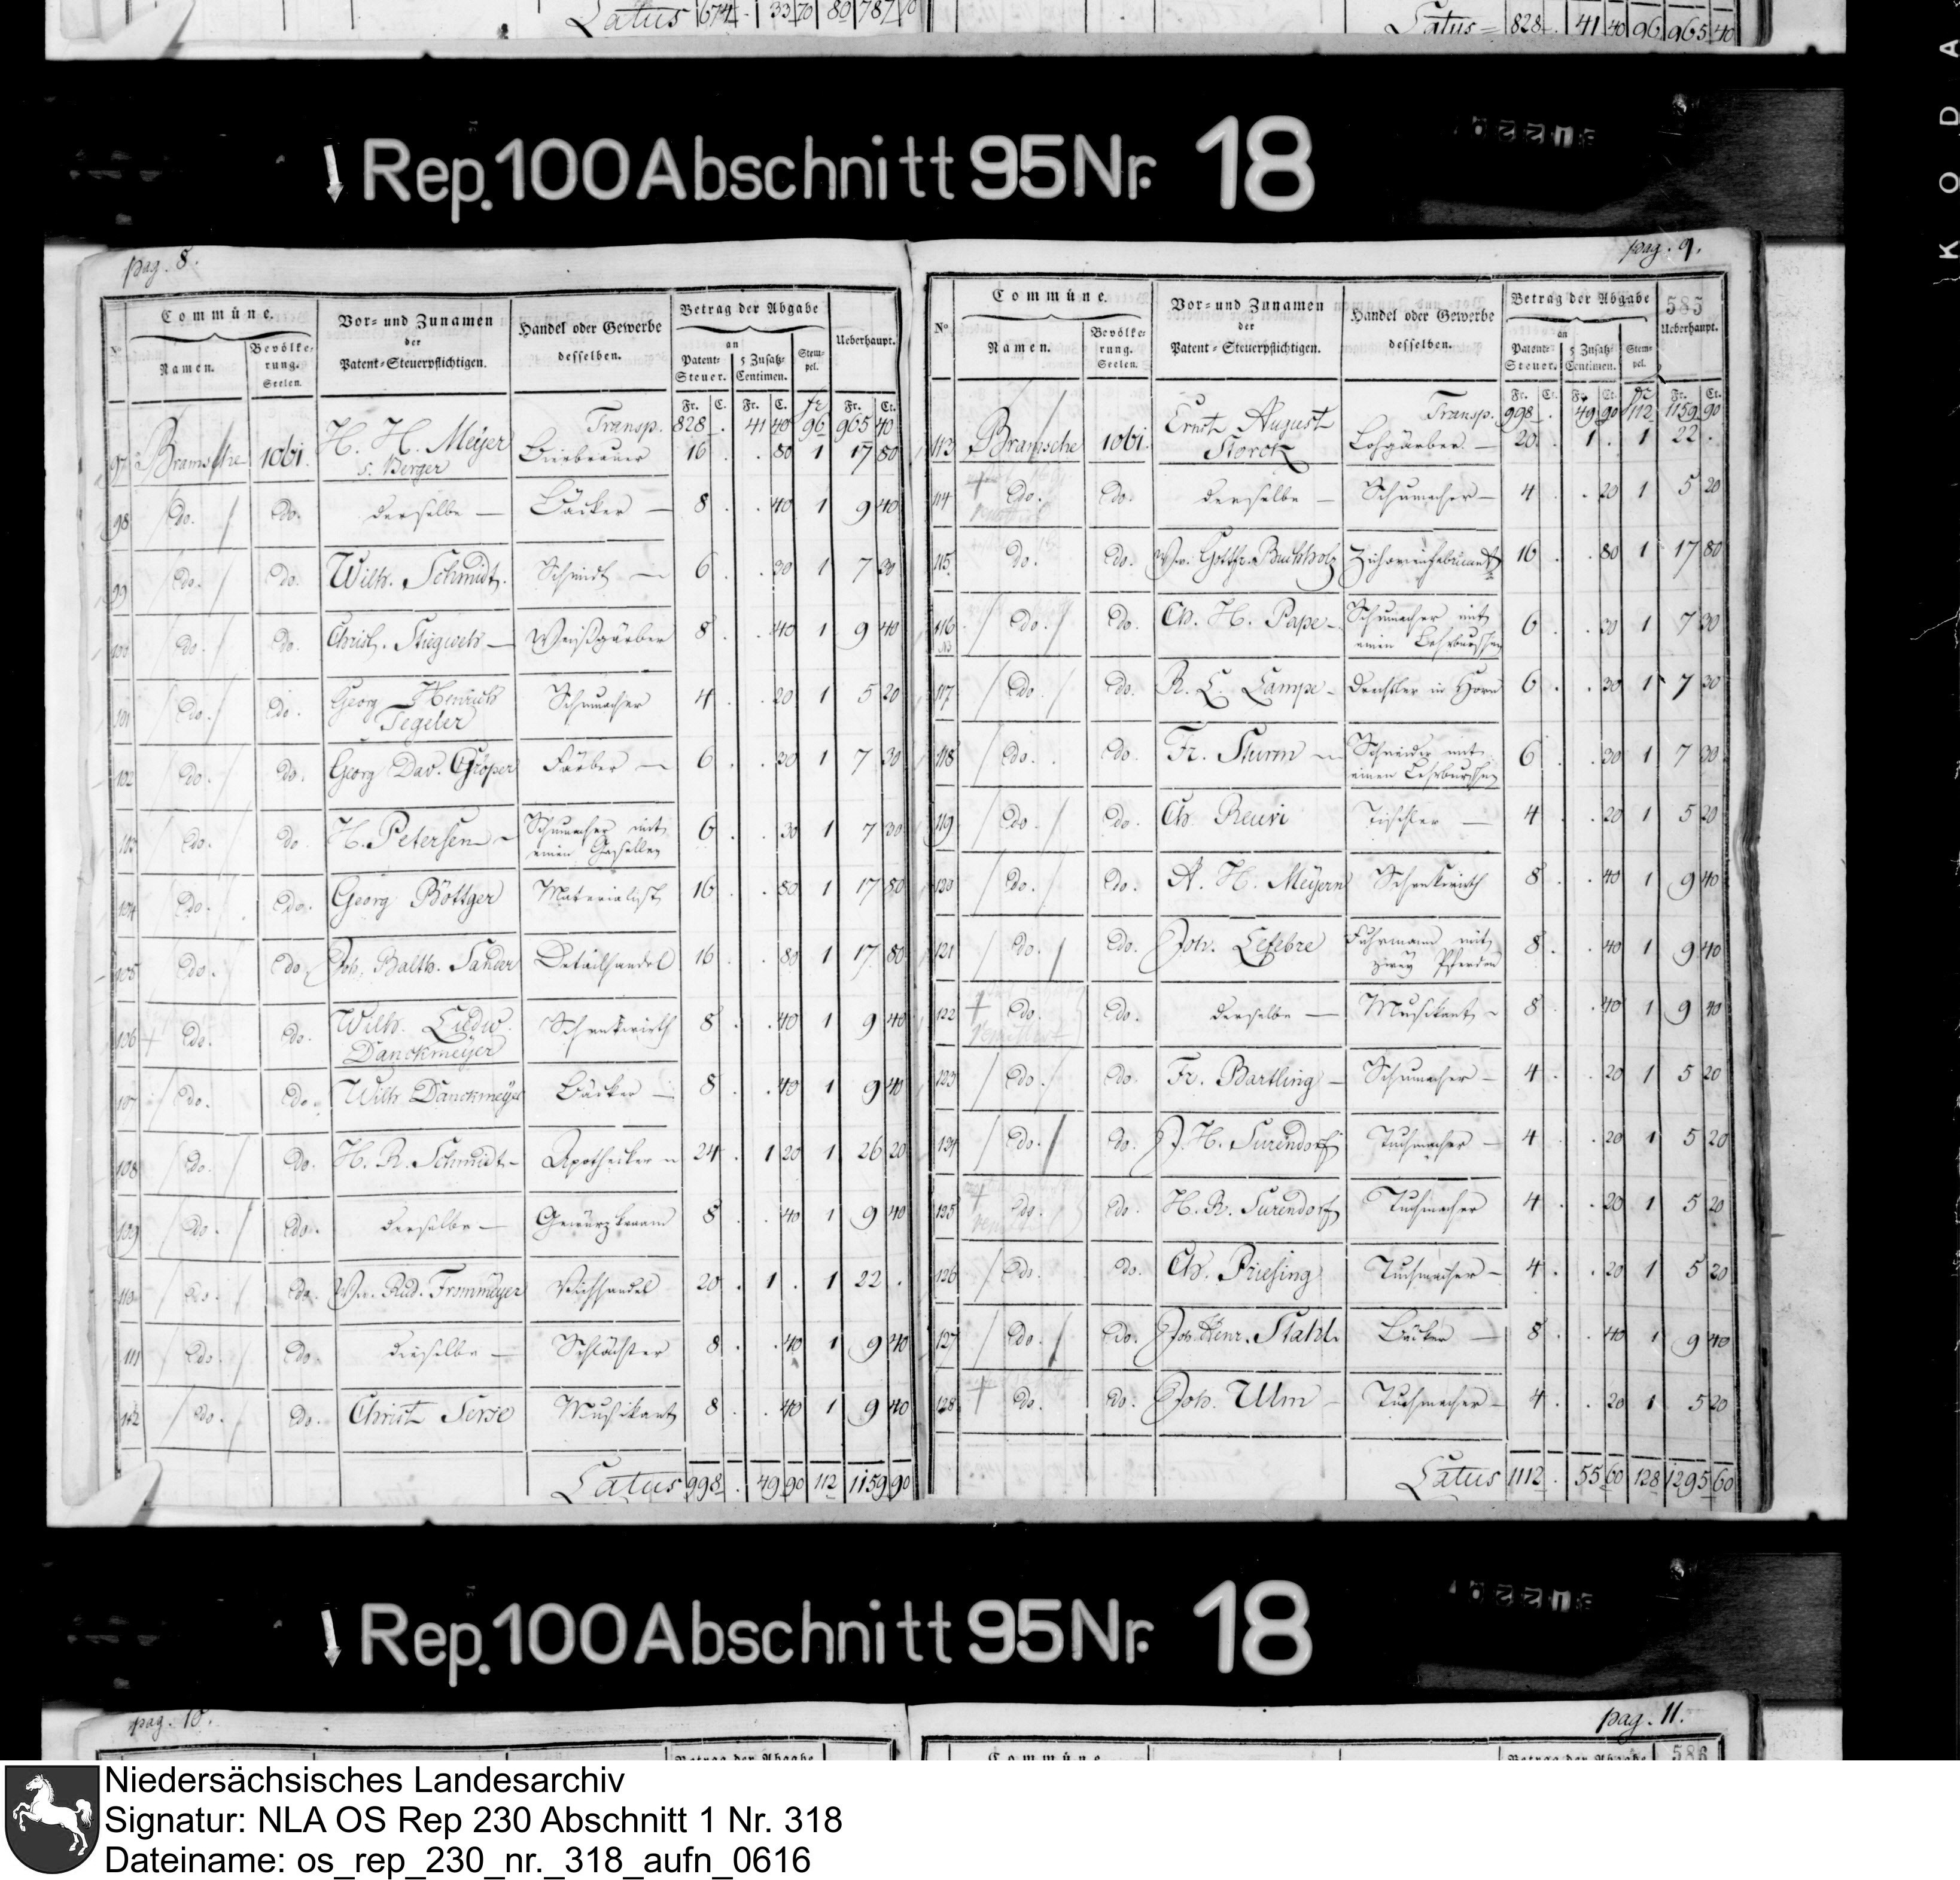 Latus 674 . 33 70 80 787 70
Latus = 828 . 41 40 96 965 40
K O D A
Rep. 100 Abschnitt 95 Nr. 18
pag. 8.
Commüne. Vor- und Zunamen der Patent-Steuerpflichtigen. Handel oder Gewerbe desselben. Betrag der Abgabe Ueberhaupt.
Namen. Bevölkerung. Seelen. an Patent-Steuer. 5 Zusatz-Centimen. Stempel.
Fr. C. Fr. C. fr Fr. Ct.
Transp. 828 . 41 40 96 965 40
97 Bramsche 1061. H. H. Meyer s. Berger Bierbrauer 16 . . 80 1 17 80
98 do. do. derselbe — Bäcker — 8 . . 40 1 9 40
99 do. do. Wilh. Schmidt. Schmidt — 6 . . 30 1 7 30
100 do. do. Christ. Weißgärber 8 . . 40 1 9 40
101 do. do. Georg Henrich Tegeler Schumacher 4 . . 20 1 5 20
102 do. do. Georg Dav. Gröper Färber — 6 . . 30 1 7 30
103 do. do. H. Petersen — Schumacher mit einen Gesellen 6 . . 30 1 7 30
104 do. do. Georg Böttger Materialist 16 . . 80 1 17 80
105 do. do. Joh. Balth. Sander Detailhandel 16 . . 80 1 17 80
106 do. do. Wilh. Ludw. Danckmeyer Schenkwirth 8 . . 40 1 9 40
107 do. do. Wilh Danckmeyer Bäcker — 8 . . 40 1 9 40
108 do. do. H. R. Schmidt — Apothecker 24 . 1 20 1 26 20
109 do. do. derselbe — Gewürzkraam 8 . . 40 1 9 40
110 do. do. Ww. Rud. Frommeyer Viehhandel 20 . 1 . 1 22 .
111 do. do. dieselbe — Schlächter 8 . . 40 1 9 40
112 do. do. Christ Serse Musikant 8 . . 40 1 9 40
Latus 998 . 49 90 112 1159 90
pag. 9.
585
No Commüne. Vor- und Zunamen der Patent-Steuerpflichtigen. Handel oder Gewerbe desselben. Betrag der Abgabe Ueberhaupt.
Namen. Bevölkerung. Seelen. an Patent-Steuer. 5 Zusatz-Centimen. Stempel.
Fr. Ct. Fr. Ct. fr Fr. Ct.
Transp. 998 . 49 90 112 1159 90
113 Bramsche 1061. Ernst August Storck Lohgärber — 20 . 1 . 1 22 .
114 do. do. derselbe — Schumacher — 4 . . 20 1 5 20
115 do. do. Ww. Gottfr. Buchholz Zichorienfabricant 16 . . 80 1 17 80
116 do. do. Ch. H. Pape — Schumacher mit einen Lehrburschen 6 . . 30 1 7 30
117 do. do. R. L. Lampe — Drechsler in Horn 6 . . 30 1 7 30
118 do. do. Fr. Sturm — Schneider mit einen Lehrburschen 6 . . 30 1 7 30
119 do. do. Ch. Tischler — 4 . . 20 1 5 20
120 do. do. A. H. Meyern Schenkwirth 8 . . 40 1 9 40
121 do. do. Joh. Lefebre Fuhrmann mit zwey Pferden 8 . . 40 1 9 40
122 do. do. derselbe — Musikant — 8 . . 40 1 9 40
123 do. do. Fr. Bartling — Schumacher — 4 . . 20 1 5 20
124 do. do. J. H. Surendorf Tuchmacher — 4 . . 20 1 5 20
125 do. do. H. R. Surendorf Tuchmacher 4 . . 20 1 5 20
126 do. do. Ch. Priesing Tuchmacher — 4 . . 20 1 5 20
127 do. do. Joh. Henr. Stahl. Bäcker — 8 . . 40 1 9 40
128 do. do. Joh. Ulm — Tuchmacher — 4 . . 20 1 5 20
Latus 1112 . 55 60 128 1295 60
Rep. 100 Abschnitt 95 Nr. 18
pag. 10.
pag. 11.
Commüne
Betrag der Abgabe
586
Niedersächsisches Landesarchiv
Signatur: NLA OS Rep 230 Abschnitt 1 Nr. 318
Dateiname: os_rep_230_nr._318_aufn_0616